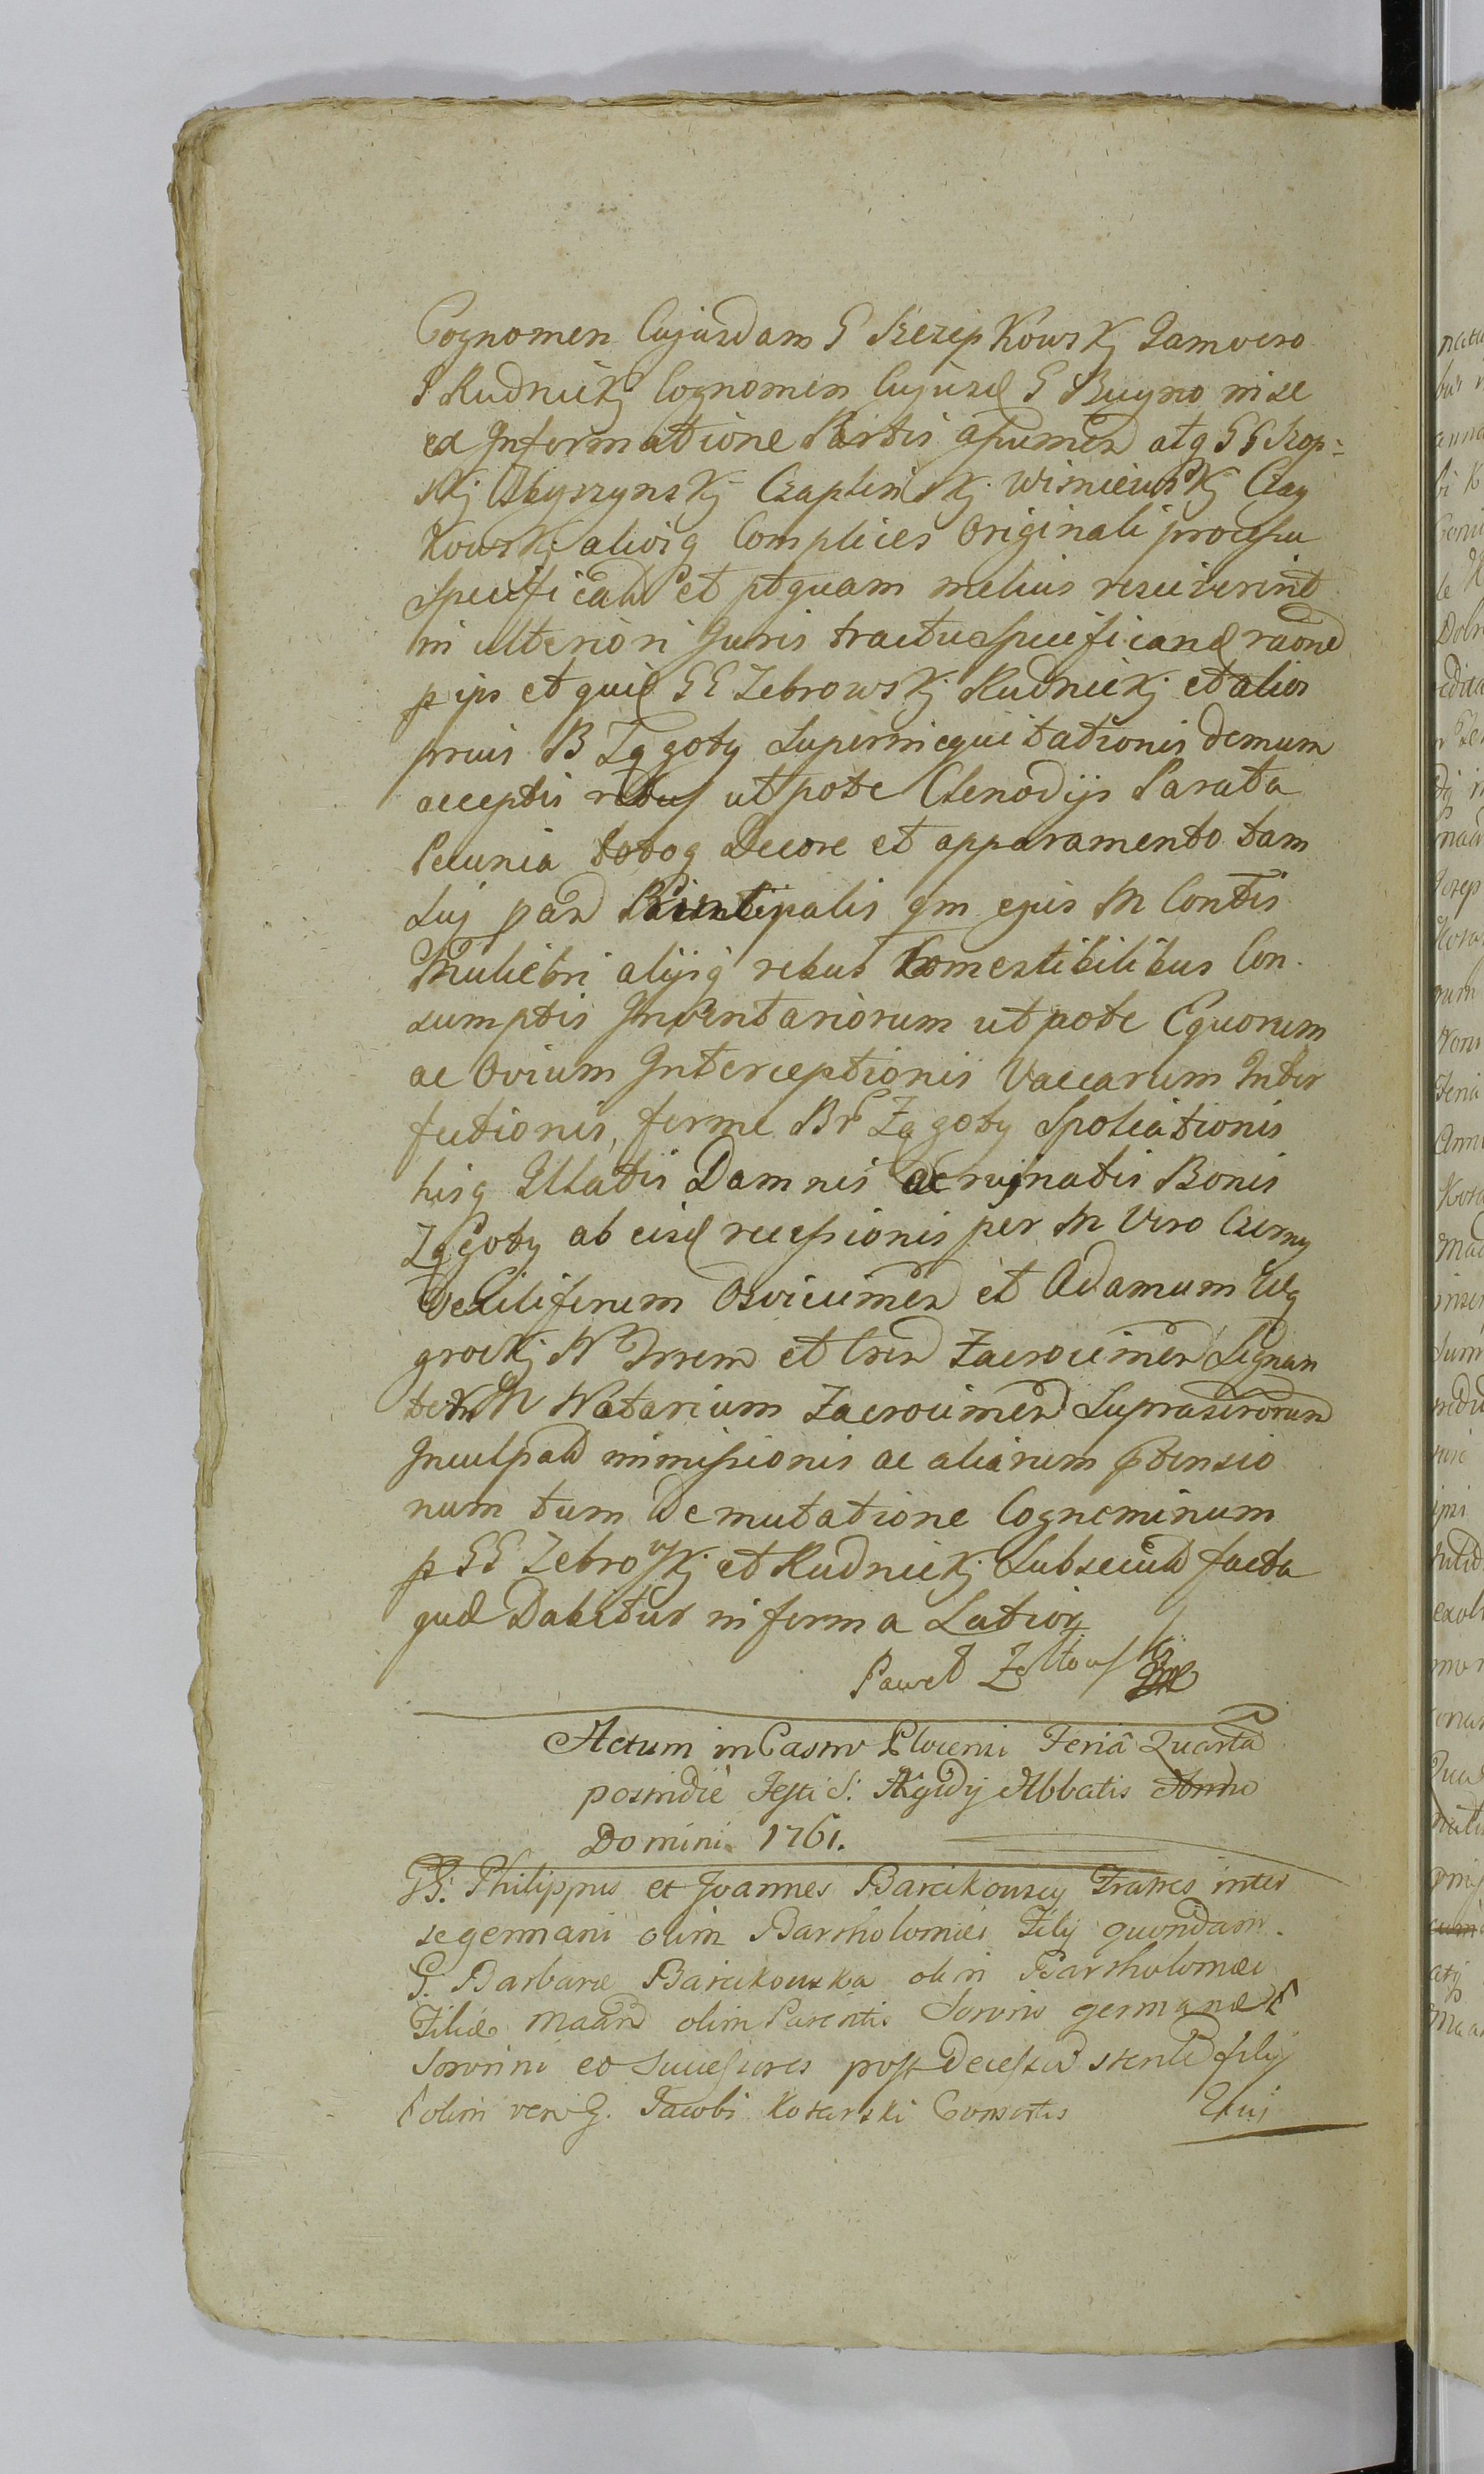 Cognomen Cujusdam G Krzepkowskj Tam vero
G Rudnickj Cognomen Cujusd G Bugno in se
ex Informatione Partis assumen atq GG Szop-
skj Zbyszynskj Czaplinskj Wisniewskj Czay
kowskj aliosq Complices Originali processu
Specificad et ptquam melius resciverint
in ulteriori Juris tractu specificand raone
p ips et quid GG Zebrowskj Rudnickj et alios
prius B Zągoty Superinequitationis demum
acceptis rebus utpote Clenodijs Parata
Pecunia totoq Decore et apparamento tam
Suj pard Principalis qm ejus M Contis
Muliebri alijsq rebus Comestibilibus Con
sumptis Inventariorum utpote Equorum
ac Ovium Interceptionis Vaccarum Inter
fectionis, ferme Br Zągoty Spoliationis
hisq Illatis Damnis ac ruinatis Bonis
Zągoty ab eisd recessionis per M Viro Czerny
Vexiliferum Osvicimen et Adamum Wę
grockj N Trrem et Cren Zacrocimen Signan
tem M Notarium Zacrocimen Suprascrorum
Inculpad immissionis ac aliarum ptensio
num tum De mutatione Cognominum
p GG Zebrowskj et Rudnickj Subsecuta facta
quæ Dabitur in forma Latiorj
Paweł Zołtowskj
Actum in Castro Plocensi Feriâ Quarta
postridiè Festi S: Ægidij Abbatis Anno
Domini 1761.
GG: Philippus et Joannes Barcikowscy Fratres inter
se germani olim Bartholomæi Filij quondam
G: Barbaræ Barcikowska olim Bartholomæi
Filiæ Maard olim Parentis Sororis germanæ
Sororini eo Successores post Decessum steril filij
olim vero G. Jacobi Kosarski Consortis Ejus